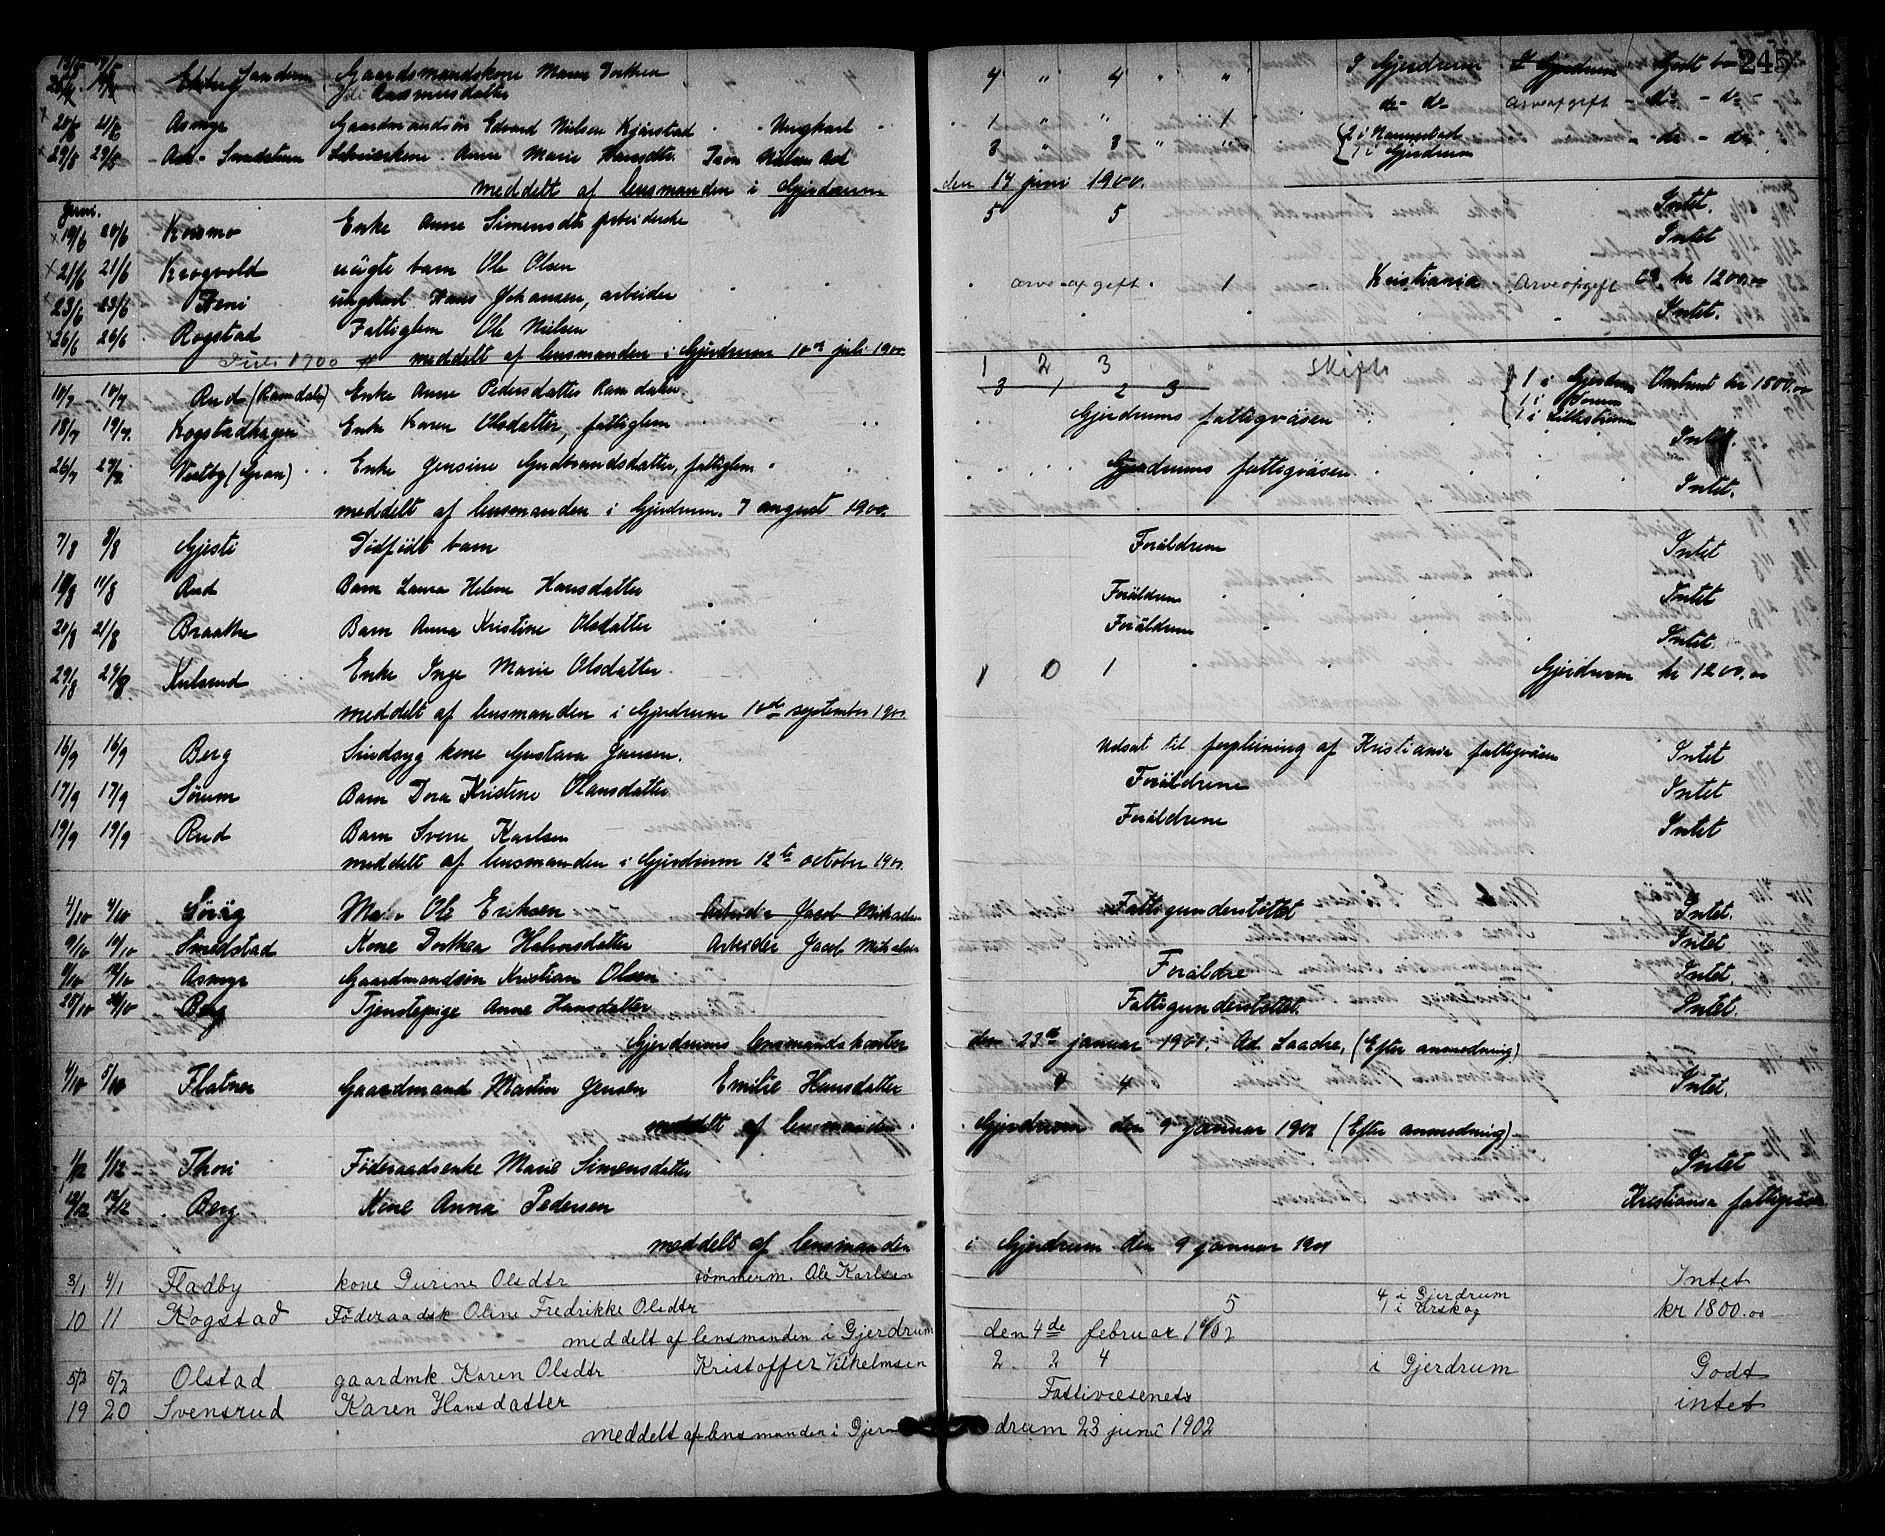 245
Gaardmandskone Maren Dorthea 4 " 4 " " I Gjerdrum I Gjerdrum Godt bo
Rasmusdatter do - do Arveafgift - do - do
20/5 21/5 Asmyr Gaardmandsøn Edvard Nielsen Kjærstad Ungkarl 1 " " 1
29/5 29/5 Ask - Anne Marie Hansdtr. 3 " 3 " 2 i Nannestad 1 i Gjerdrum - do - do
meddelt af lensmanden i Gjerdrum den 14 juni 1900.
Juni.
19/6 20/6 Kosmo Enke Anne Simensdtr arbeiderske 5 5 Intet.
21/6 21/6 Krogvold uægte barn Ole Olsen Intet
23/6 23/6 ungkarl Hans Johansen, arbeider arve-afgift 1 Kristiania Arveafgift kr 1200.00
26/6 26/6 Rogstad Fattiglem Ole Nielsen Intet.
Juli 1900 meddelt af lensmanden i Gjerdrum 10de juli 1900.
1 2 3 skifte
10/7 10/7 Rud (Ramdalen) Enke Anne Pedersdatter Ramdalen 3 1 2 3 1 i Gjerdrum Omtrent kr 1800.00
1 i Sørum
18/7 19/7 Kogstadhagen Enke Karen Olsdatter, fattiglem Gjerdrums fattigvæsen 1 i Lillestrøm Intet
26/7 27/7 Vestby (Gran) Enke Jensine Gudbrandsdatter, fattiglem Gjerdrums fattigvæsen Intet.
meddelt af lensmanden i Gjerdrum. 7 august 1900.
7/8 8/8 Gjesti Dødfødt barn Forældrene Intet
10/8 11/8 Rud Barn Laura Helene Hansdatter Forældrene Intet
20/8 21/8 Braathe Barn Anna Kristine Olsdatter Forældrene Intet.
29/8 29/8 Kulsrud Enke Inge Marie Olsdatter 1 0 1 Gjerdrum kr 1200.00
meddelt af lensmanden i Gjerdrum 10de september 1900
16/9 16/9 Berg Sindsyg kone Gustava Jansen. Udsat til forpleining af Kristiania fattigvæsen Intet
17/9 17/9 Sørum Barn Dora Kristine Olausdatter Forældrene Intet
19/9 19/9 Rud Barn Sverre Karlsen Forældrene Intet
meddelt af lensmanden i Gjerdrum 12te october 1900
4/10 4/10 Ole Eriksen Arbeider Jacob Mikaelsen Fattigunderstøttet Intet.
9/10 14/10 Smedstad Kone Dorthea Halvorsdatter Arbeider Jacob Mikalsen Intet
Asmyr Gaardmandsøn Kristian Olsen Forældre Intet.
25/10 Berg Tjenstepige Anne Hansdatter Fattigunderstøttet Intet.
Gjerdrums lensmandskontor den 23de januar 1901. (Efter anmodning)
4/10 5/10 Flatner Gaardmand Martin Jensen Emilie Hansdatter 4 4 Intet.
meddelt af lensmanden. Gjerdrum den 9 januar 1901 (Efter anmodning)
1/12 1/12 Thori Føderaadsenke Marie Simensdatter Intet
12/12 12/12 Berg Kone Anna Pedersen Kristiania fattigvæsen
meddelt af lensmanden i Gjerdrum den 9 januar 1901
3/1 4/1 Fladby kone Gurine Olsdtr tømmerm. Ole Karlsen Intet
10 11 Kogstad Føderaadsk Oline Fredrikke Olsdtr 5 4 i Gjerdrum 1 i Urskog kr 1800.00
meddelt af lensmanden i Gjerdrum den 4de februar 1902
5/2 5/2 Olstad gaardmk Karen Olsdtr Kristoffer Vilhelmsen 2 2 4 i Gjerdrum Godt
19 20 Svensrud Karen Hansdatter Fattivæsenets intet
meddelt af lensmanden i Gjerdrum 23 juni 1902